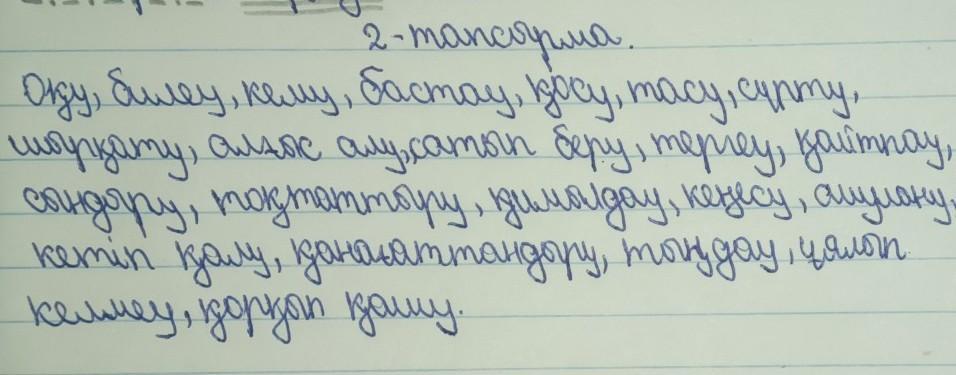 2-тапсырма.
Оқу, билеу, кему, бастау, қосу, тасу, сүрту,
шырқату, алғыс алу, сатып беру, терлеу, қайтпау,
сындыру, тоқтаттыру, қимылдау, кеңесу, ашулану,
кетіп қалу, қанағаттандыру, тыңдау, ұялып
келмеу, қорқып қашу.